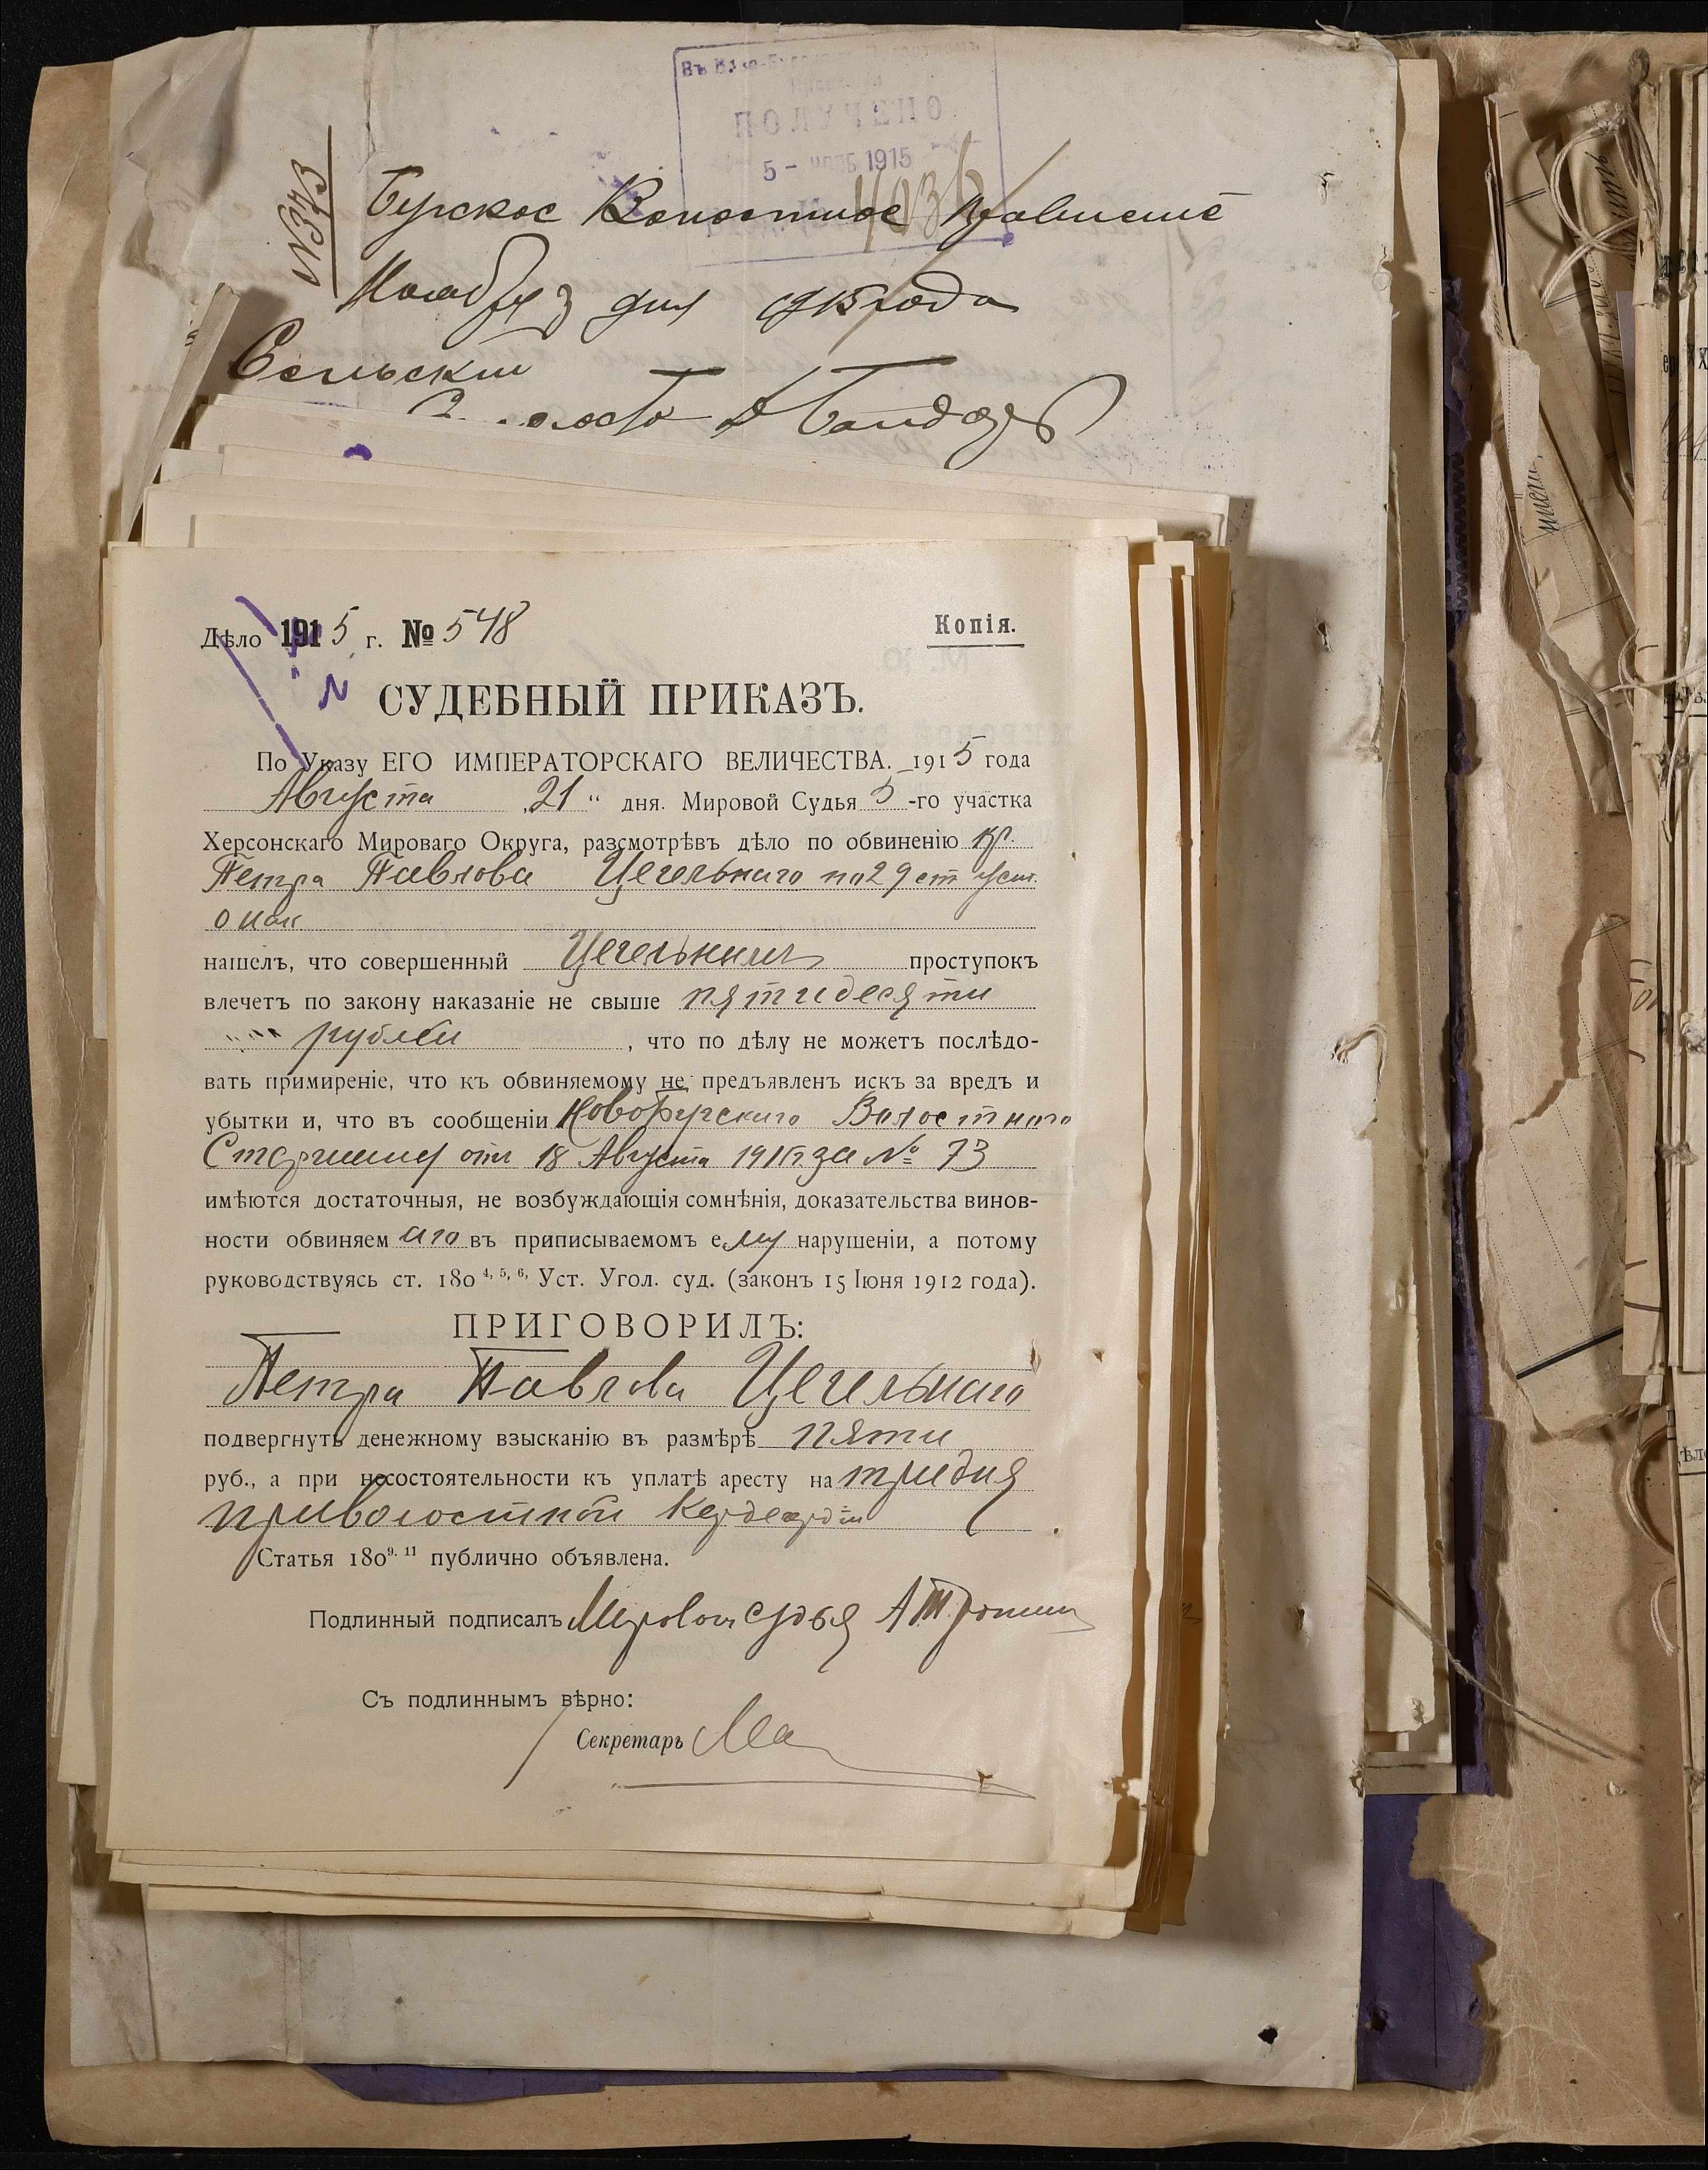 ПОЛУЧЕНО
5 - нояб 1915
№ 373
Бугское Волостное Правленіе
Ноября 3 дня 1915 года
Сельскій
Дѣло 1915 г. № 548
Копія.
СУДЕБНЫЙ ПРИКАЗЪ.
По Указу ЕГО ИМПЕРАТОРСКАГО ВЕЛИЧЕСТВА. 1915 года
Августа „21“ дня. Мировой Судья 5-го участка
Херсонскаго Мироваго Округа, разсмотрѣвъ дѣло по обвиненію кр.
Петра Павлова Цегельнаго по 29 ст уст.
о нак
нашелъ, что совершенный Цегельнымъ проступокъ
влечетъ по закону наказаніе не свыше пятидесяти
рублей, что по дѣлу не можетъ послѣдо-
вать примиреніе, что къ обвиняемому не предъявленъ искъ за вредъ и
убытки и, что въ сообщеніи Новобугскаго Волостного
Старшины отъ 18 Августа 1915 г. за № 73
имѣются достаточныя, не возбуждающія сомнѣнія, доказательства винов-
ности обвиняемаго въ приписываемомъ ему нарушеніи, а потому
руководствуясь ст. 180 4, 5, 6, Уст. Угол. суд. (законъ 15 Іюня 1912 года).
ПРИГОВОРИЛЪ:
Петра Павлова Цегельнаго
подвергнуть денежному взысканію въ размѣрѣ пяти
руб., а при несостоятельности къ уплатѣ аресту на три дня
при волостной
Статья 180 9. 11 публично объявлена.
Подлинный подписалъ Мировой Судья А
Съ подлиннымъ вѣрно:
Секретарь